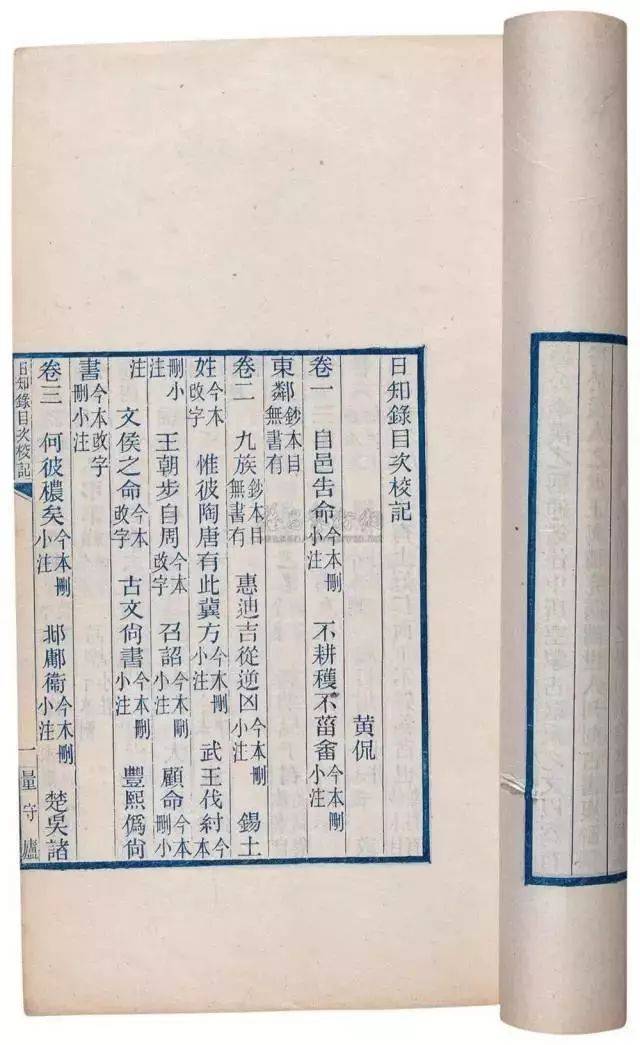 日知錄目次校記
黃侃
卷一 自邑告命今本刪小注 不耕穫不菑畬今本刪小注
東鄰鈔本目無書有
卷二 九族鈔本目無書有 惠迪吉從逆凶今本刪小注 錫土
姓今本改字 惟彼陶唐有此冀方今本刪小注 武王伐紂今本
刪小注 王朝步自周今本改字 召誥今本刪小注 顧命今本刪小
注 文侯之命今本改字 古文尚書今本刪小注 豐熙偽尚
書今本改字刪小注
卷三 何彼穠矣今本刪小注 邶鄘衞今本刪小注 楚吳諸
日知錄目次校記 一 量守廬